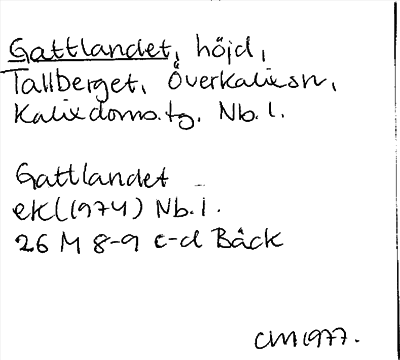 Gattlandet, höjd,
Tallberget, Överkalix sn,
Kalix doms.tg. Nb.l.
Gattlandet
ekl (1974) Nb.l.
26 M 8-9 c-d Bäck
CM 1977.